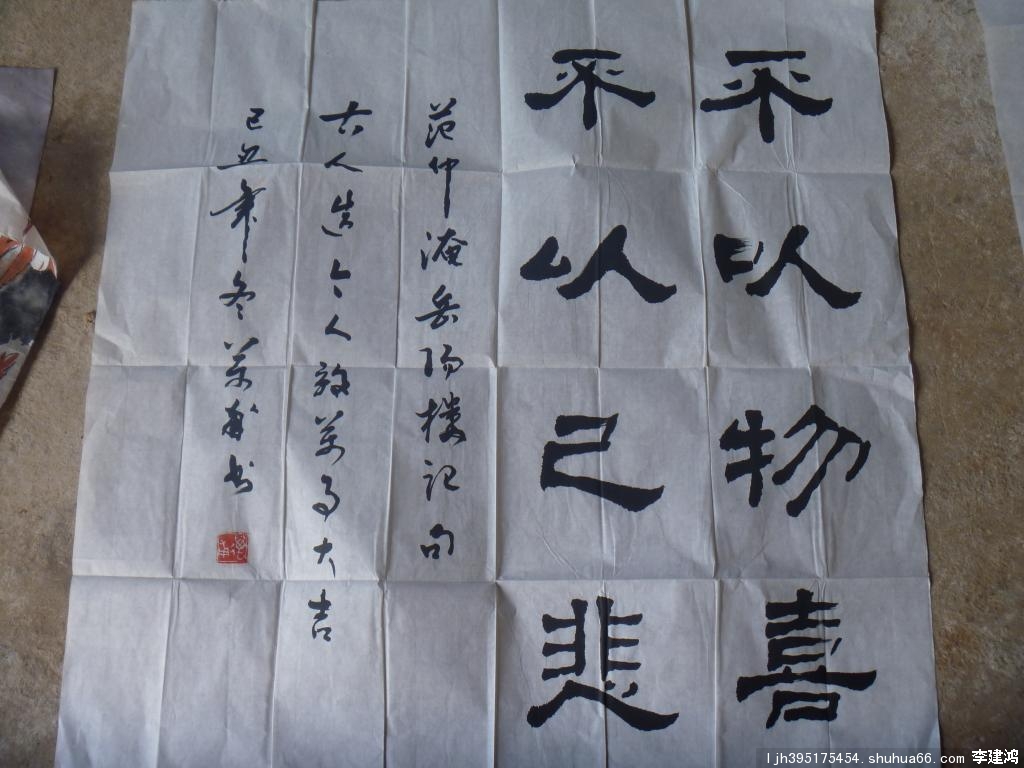 不以物喜
不以己悲
范仲淹岳阳楼记句
古人造今人效万事大吉
己丑年冬 书
ljh395175454. shuhua66. com 李建鸿